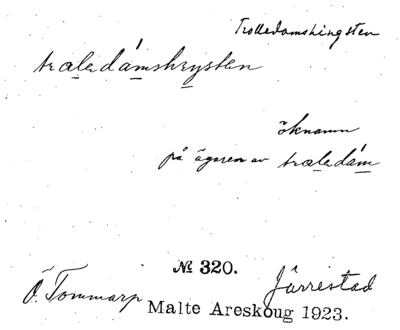 Trolledamshingsten
traledámshrysten
öknamn
på ägaren av traledám
№ 320.
Ö. Tommarp Järrestad
Malte Areskoug 1923.